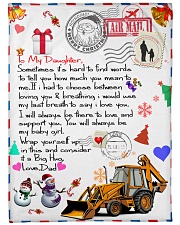 AIR MAIL
To My Daughter,
Sometimes it's hard to find words
to tell you how much you mean to
me. If i had to choose between
loving you & breathing i would use
my last breath to say i love you.
I will always be there to love and
support you. You will always be
my baby girl.
Wrap yourself up
in this and consider
it a Big Hug.
Love, Dad